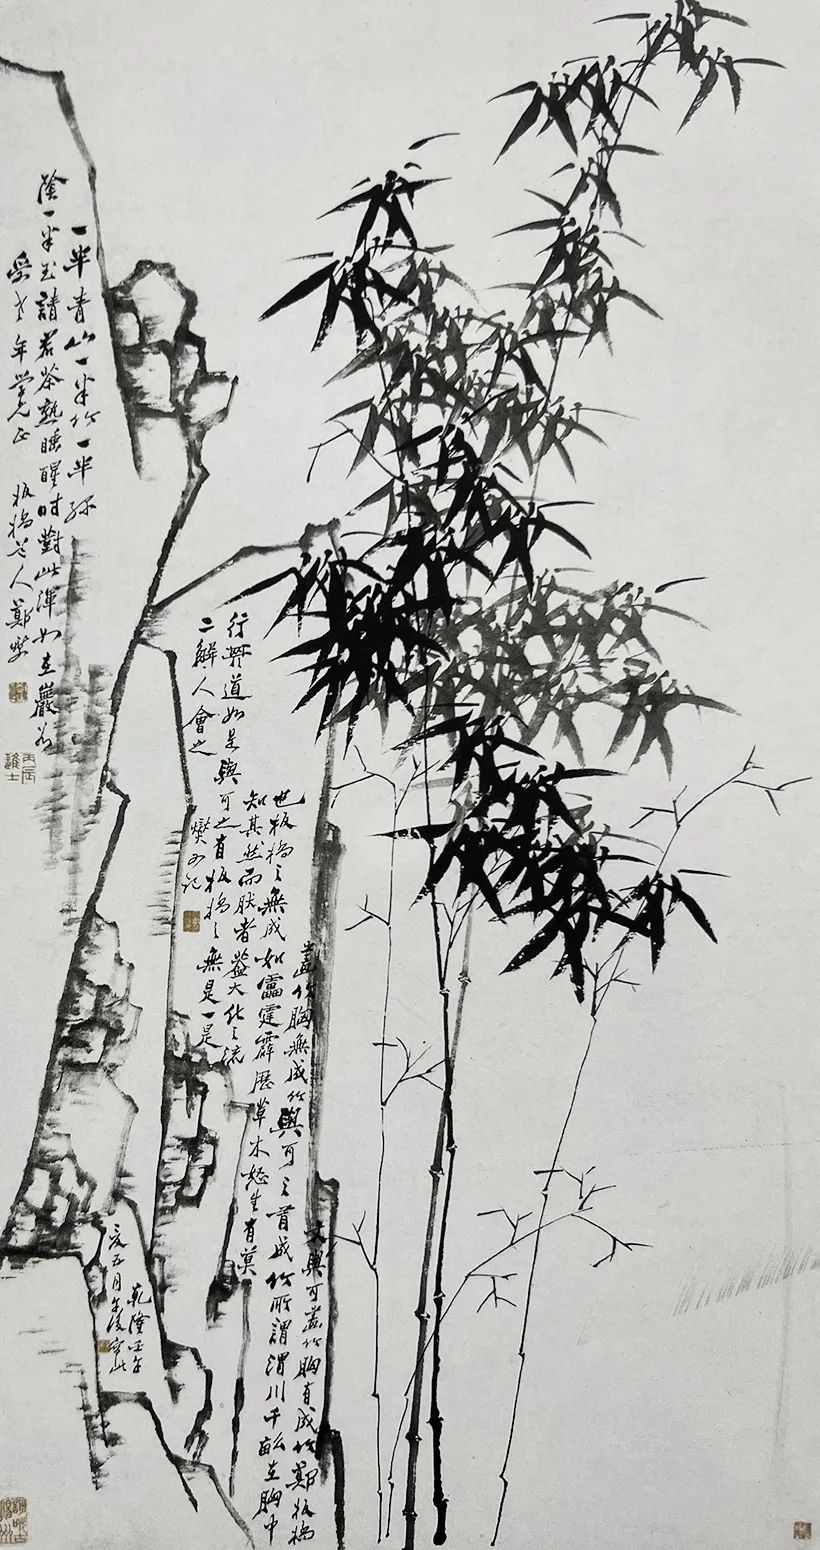 一半青山一半竹一半綠
陰一半玉請君茶熟睡醒時對此渾如在巖谷
年學兄正 板橋老人鄭燮
丙辰進士
文與可畫竹胸有成竹鄭板橋
畫竹胸無成竹與可之有成竹所謂渭川千畝在胸中
也板橋之無成如雷霆霹歷草木怒生有莫
知其然而然者蓋大化之流
行其道如是與可之有板橋之無是一是
二解人會之
燮又記
乾隆壬午
夏五月午後寫此